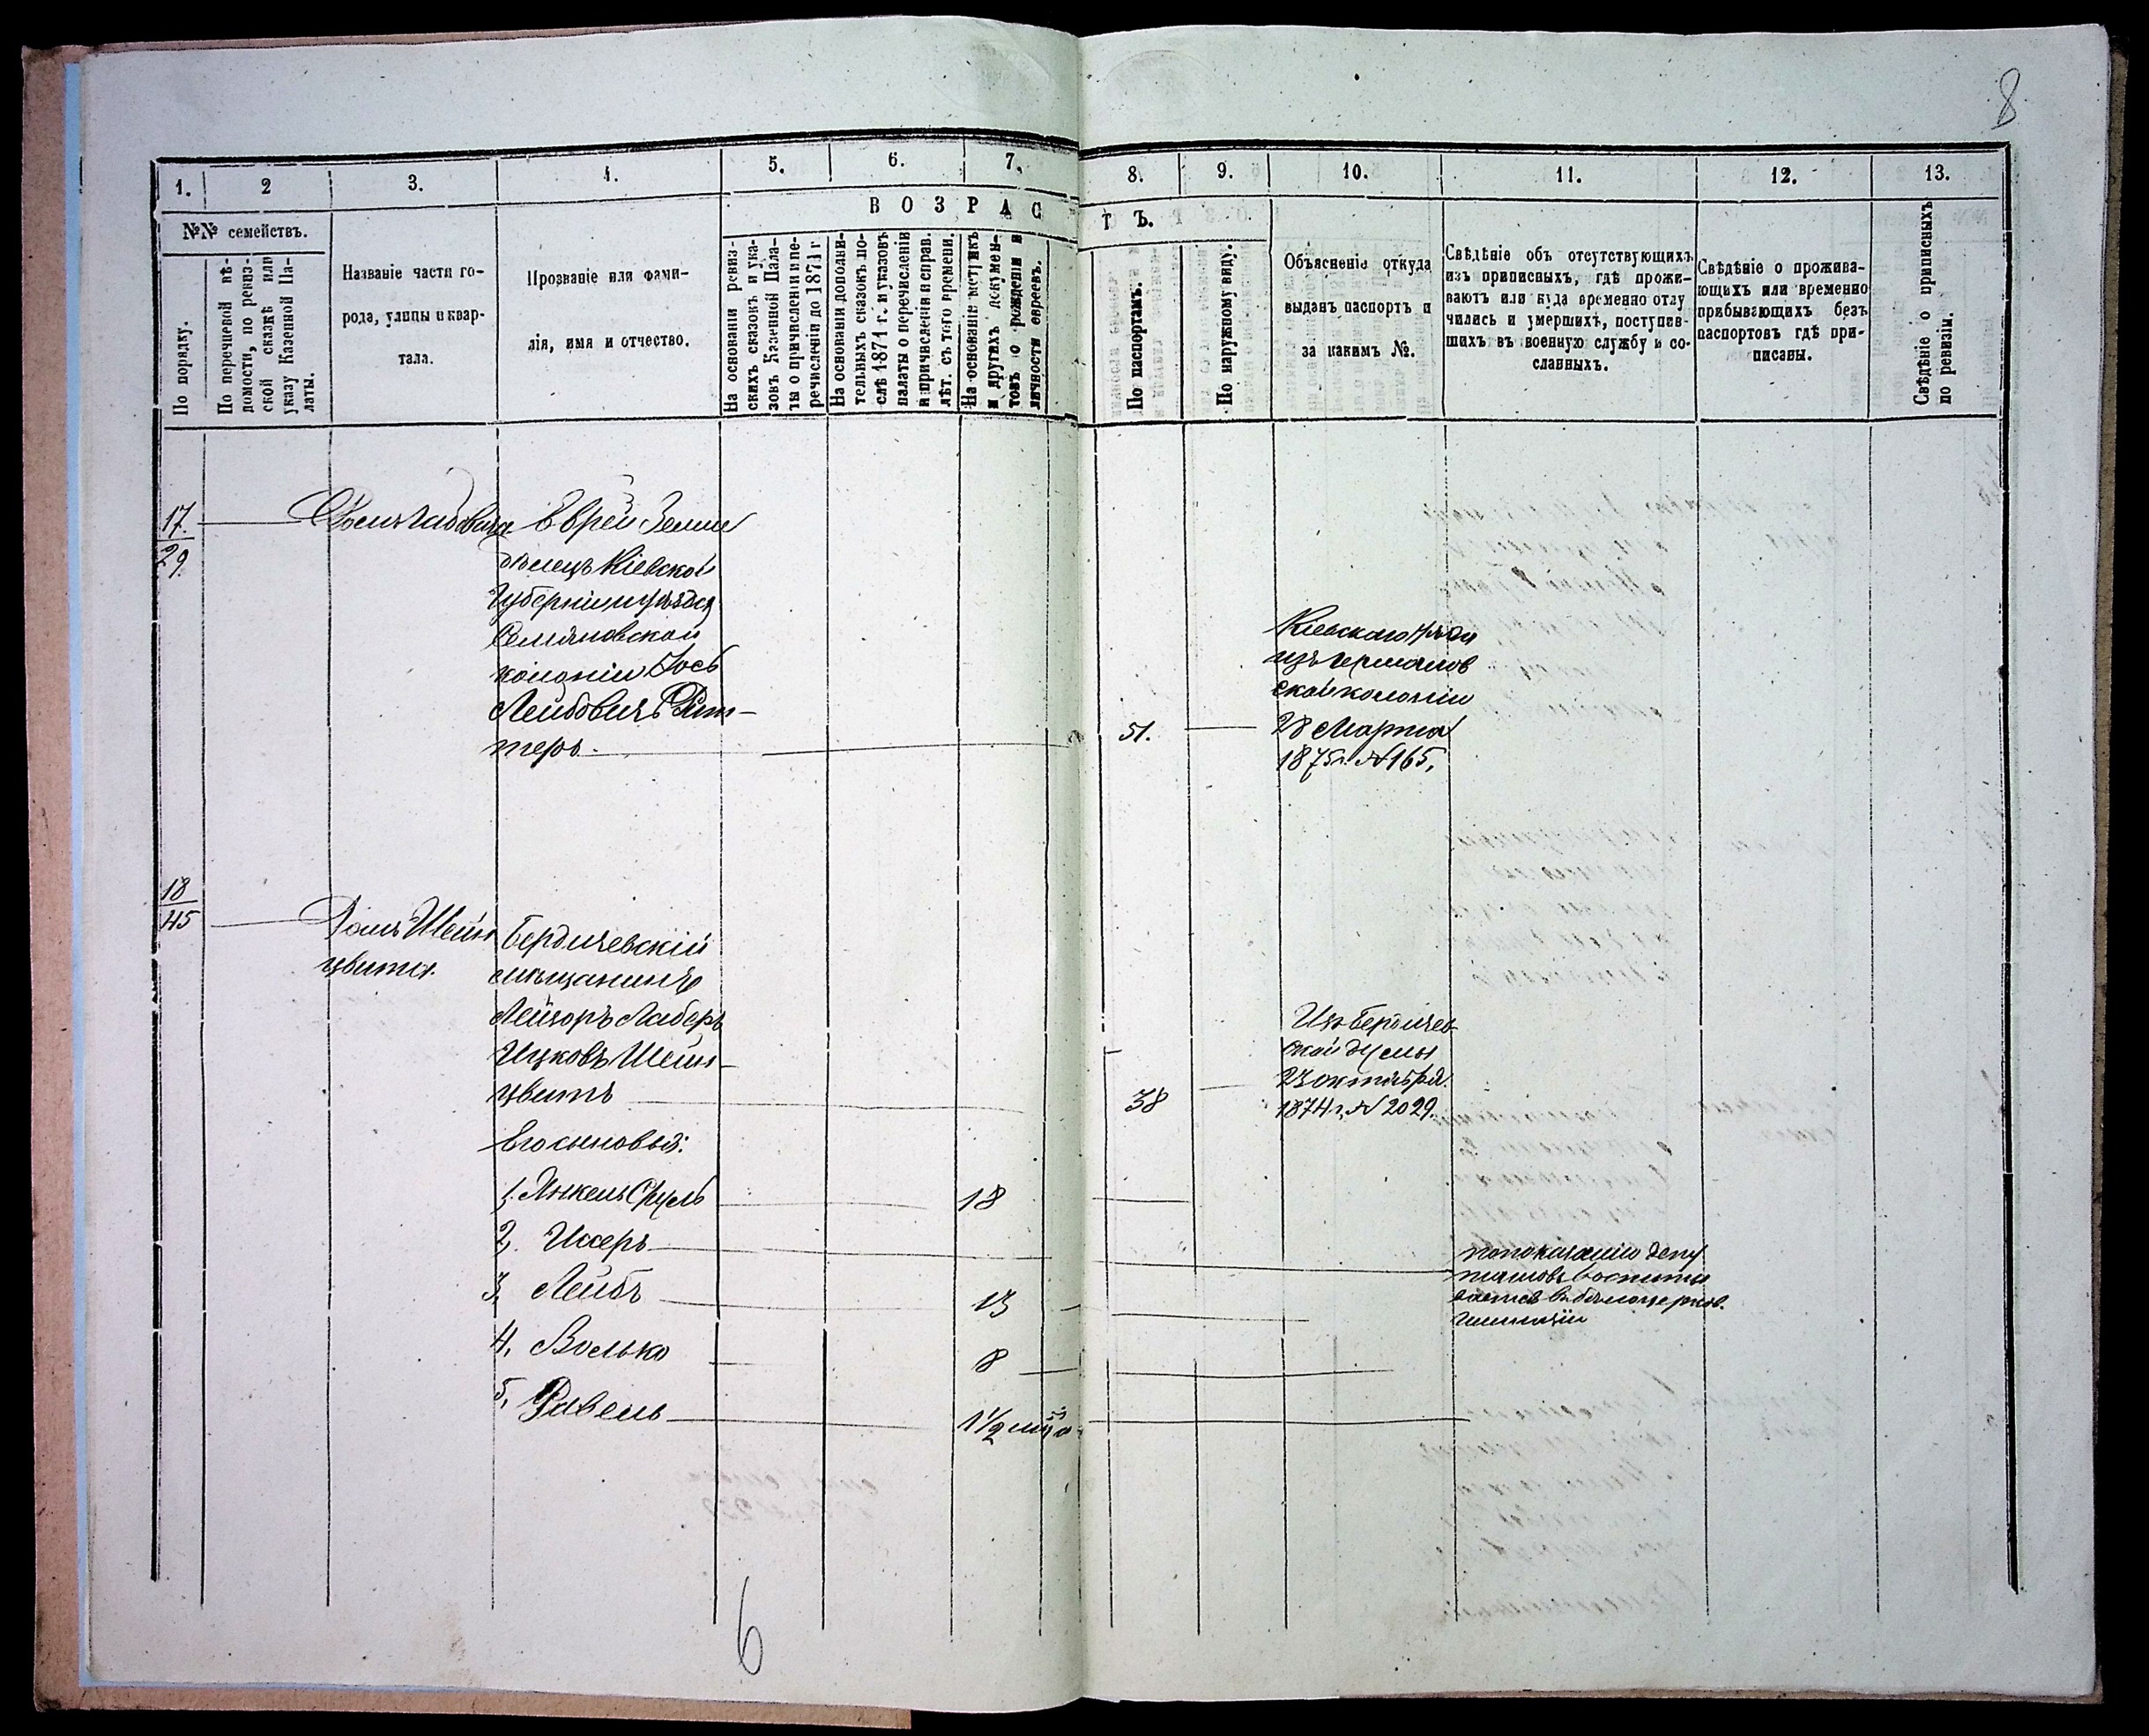 8
1. 2 3. 4. 5. 6. 7. 8. 9. 10. 11. 12. 13.
№№ семействъ.
В О З Р А С Т Ъ.
По порядку.
По перечневой вѣ-
домости, по ревиз-
ской сказкѣ или
указу Казенной Па-
латы.
Названіе части го-
рода, улицы и квар-
тала.
Прозваніе или фами-
лія, имя и отчество.
На основаніи ревиз-
скихъ сказокъ и ука-
зовъ Казенной Пала-
ты о причисленіи и пе-
речисленіи до 1871 г
На основаніи дополни-
тельныхъ сказокъ по-
слѣ 1871 г. и указовъ
палаты о перечисленіи
и причисленіи и справ.
лѣт. съ того времени.
На основаніе метрикъ
и другихъ докумен-
товъ о рожденіи и
личности евреевъ.
По паспортамъ.
По наружному виду.
Объясненіе откуда
выданъ паспортъ и
за какимъ №.
Свѣдѣніе объ отсутствующихъ
изъ приписныхъ, гдѣ прожи-
ваютъ или куда временно отлу
чились и умершихъ, поступив-
шихъ въ военную службу и со-
сланныхъ.
Свѣдѣніе о прожива-
ющихъ или временно
прибывающихъ безъ
паспортовъ гдѣ при-
писаны.
Свѣдѣніе о приписныхъ
по ревизіи.
17.
29.
Еврей Земле
дѣлецъ Кіевской
Губерніи и уѣзда
колоніи Іось
Лейбовичъ Рит-
теръ
51.
Кіевскаго уѣзда
изъ
ской колоніи
28 Марта
1875г. №165,
18
45
Домъ Шейн
цвита.
Бердичевскій
мѣщанинъ
Лейзоръ Либеръ
Ицковъ Шейн-
цвитъ
38
Изъ Бердичев
ской думы
23 октября.
1874г. № 2029.
Его сыновья:
1. Янкель Сруль 18
2, Иссеръ
по показанію депу
татовъ воспиты
вается въ белоцерков.
гимназіи
3, Лейбъ 13
4, Волько 8
5, Равель 1½
6